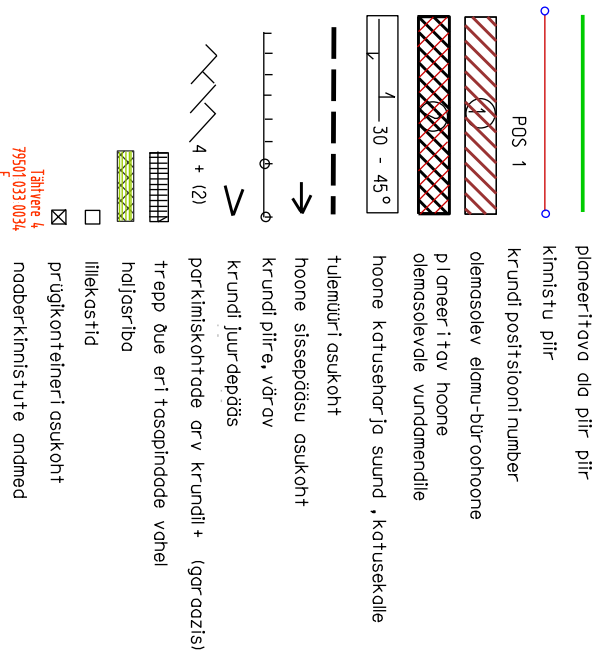 planeeritava ala piir piir
kinnistu piir
POS 1 krundi positsiooni number
1 olemasolev elamu-büroohoone
2 planeeritav hoone
olemasolevale vundamendile
1 30 - 45° hoone katuseharja suund, katusekalle
tulemüüri asukoht
hoone sissepääsu asukoht
krundi piire, värav
krundi juurdepääs
4 + (2) parkimiskohtade arv krundil+ (garaazis)
trepp õue eri tasapindade vahel
haljasriba
lillekastid
prügikonteineri asukoht
Tähtvere 4
79501 033 0034
F
naaberkinnistute andmed